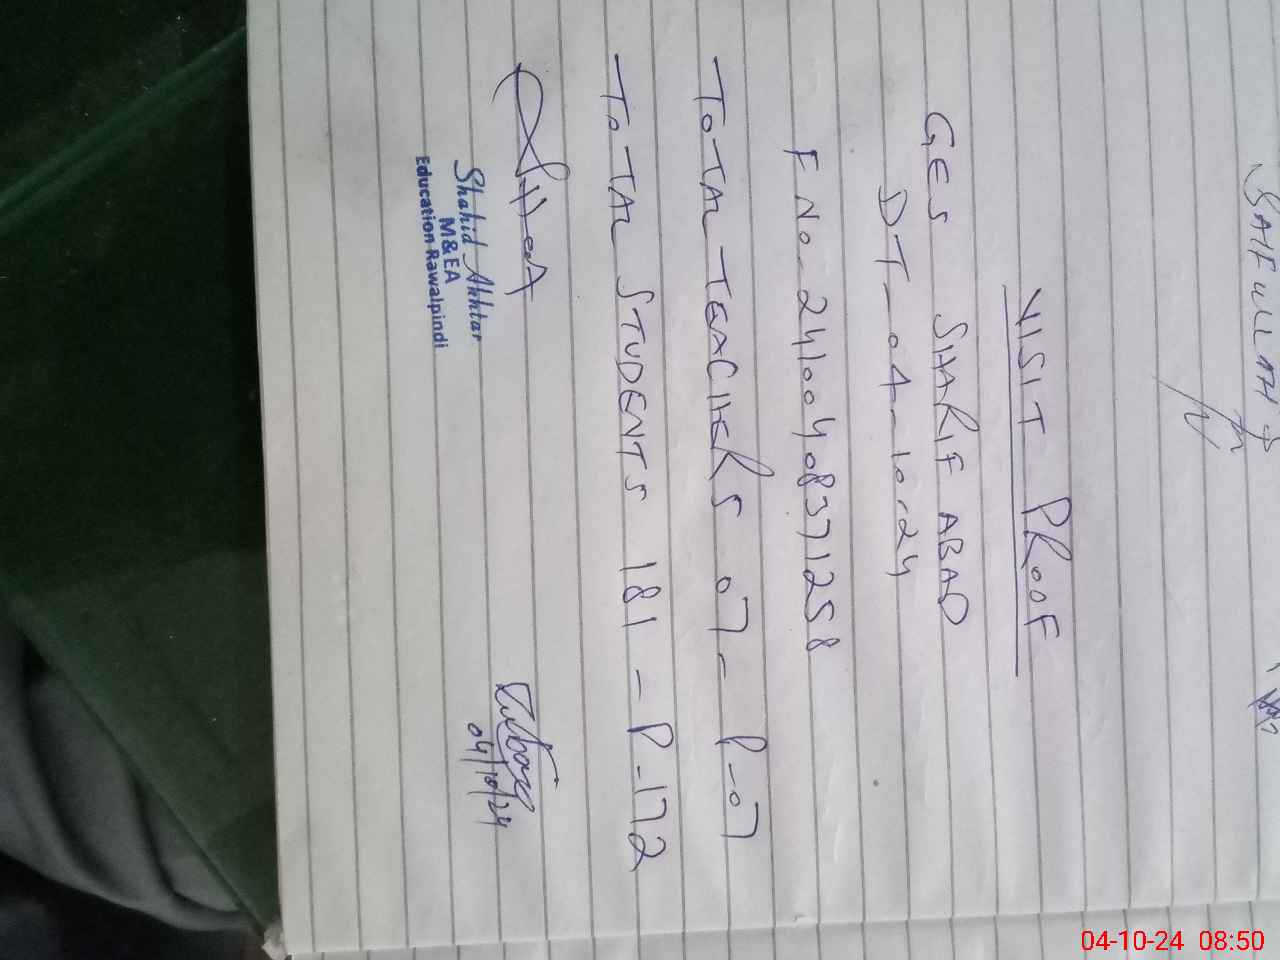 SAIFULLAH
VISIT PROOF
GES SHARIF ABAD
DT-04-10-24
F No-24100408371258
TOTAL TEACHERS 07-P-07
TOTAL STUDENTS 181-P-172
04/10/24
Shahid Akhtar
M&EA
Education Rawalpindi
04-10-24 08:50